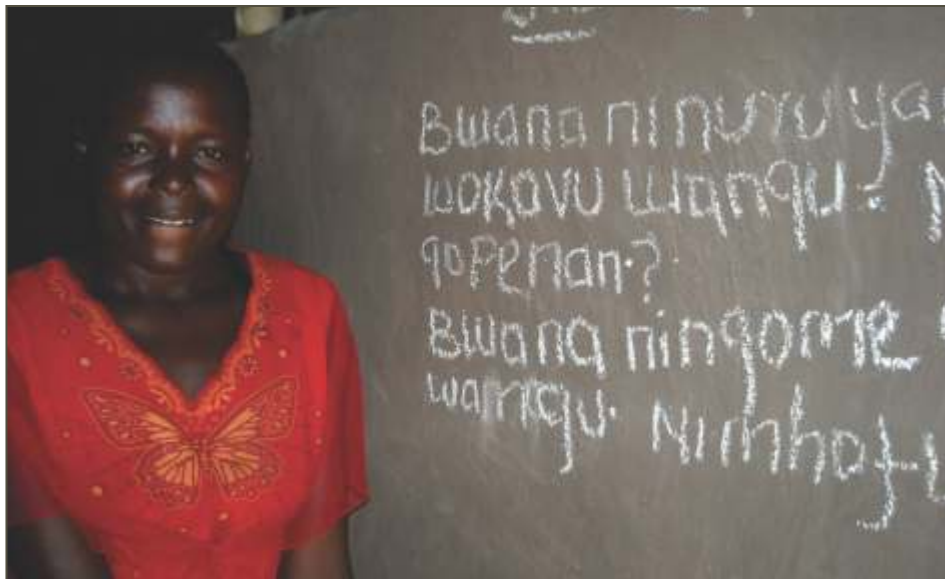 Bwana ni nuru ya
wokovu wangu:
gopenan.?
Bwana ningome
wangu. Nimhofu